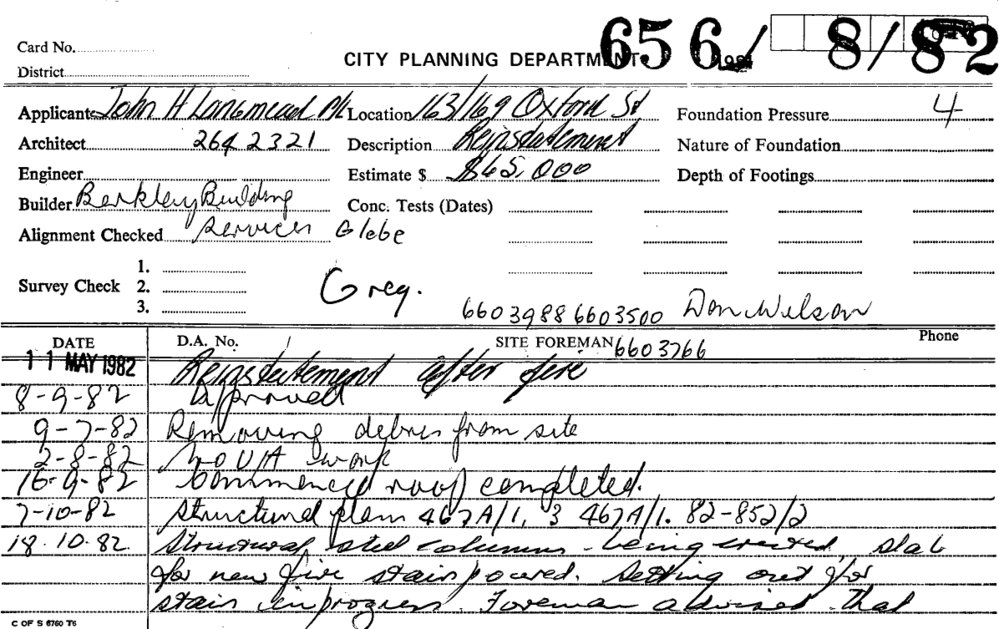 Card No.
CITY PLANNING DEPARTMENT 656/ 8/82
District
Applicants John H Langmead P/L Location 163/169 Oxford St Foundation Pressure 4
Architect 264 2321 Description Reinstatement Nature of Foundation
Engineer Estimate $ $65,000 Depth of Footings
Builder Berkley Building Conc. Tests (Dates)
Alignment Checked Services Glebe
1.
Survey Check 2. Greg.
3.
6603988 6603500 Don Wilson
DATE D.A. No. SITE FOREMAN 6603766 Phone
11 MAY 1982 Reinstatement after fire
8-9-82 approved
9-7-82 Removing debris from site
2-8-82 work
16-9-82 roof completed.
7-10-82 Structural plan 467A/1, 3 467A/1. 82-852/2
18.10.82. Structural steel columns being erected, slab
for new fire stair poured. Setting out for
stair in progress. Foreman advised that
C OF S 6760 T6